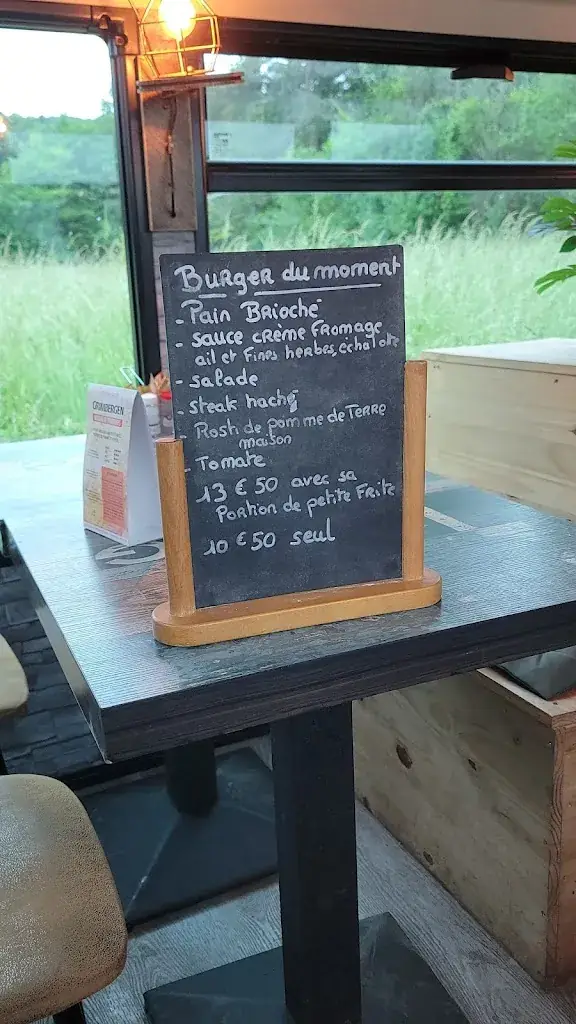 Burger du moment
- Pain Brioché
- sauce crème Fromage
ail et Fines herbes, échalote
- salade
- steak haché
- Rosti de pomme de TERRE
maison
- Tomate
13 € 50 avec sa
Portion de petite Frite
10 € 50 seul
GRIMBERGEN